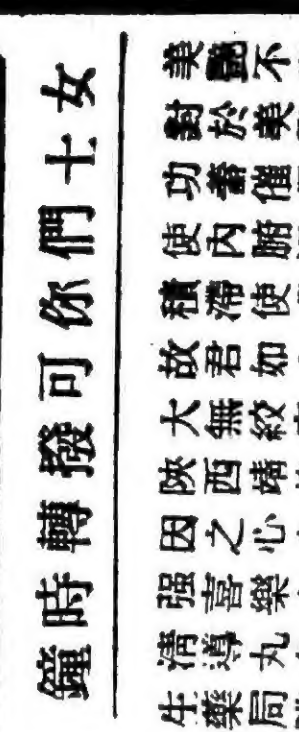 女士們你可撥轉時鐘
美艷不
對於美
功 催
使內腑
積滯使
故君如
大無絞
陝西靖
因之心
强喜樂
清導丸
生藥局